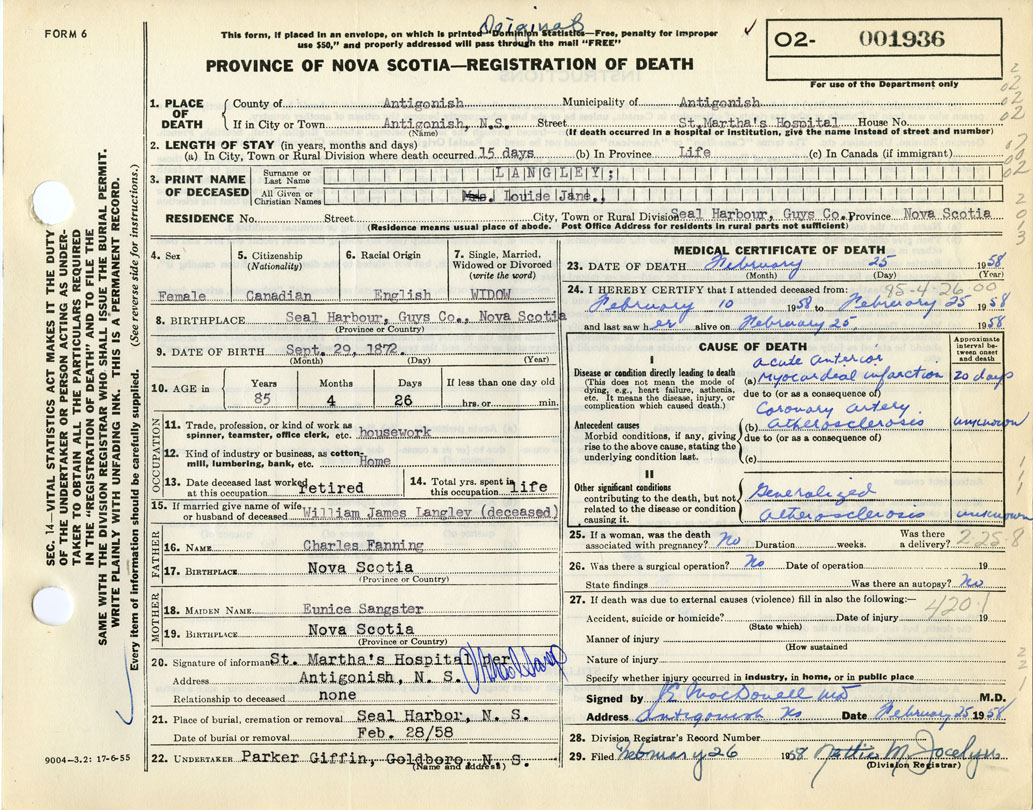 FORM 6
Original
This form, if placed in an envelope, on which is printed "Dominion Statistics—Free, penalty for improper
use $50," and properly addressed will pass through the mail "FREE"
PROVINCE OF NOVA SCOTIA—REGISTRATION OF DEATH
✓
O2- 001936
For use of the Department only
SEC. 14—VITAL STATISTICS ACT MAKES IT THE DUTY
OF THE UNDERTAKER OR PERSON ACTING AS UNDER-
TAKER TO OBTAIN ALL THE PARTICULARS REQUIRED
IN THE "REGISTRATION OF DEATH" AND TO FILE THE
SAME WITH THE DIVISION REGISTRAR WHO SHALL ISSUE THE BURIAL PERMIT.
WRITE PLAINLY WITH UNFADING INK. THIS IS A PERMANENT RECORD.
Every item of information should be carefully supplied. (See reverse side for instructions.)
1. PLACE OF DEATH
County of Antigonish Municipality of Antigonish
If in City or Town Antigonish, N.S. Street St.Martha's Hospital House No.
(Name) (If death occurred in a hospital or institution, give the name instead of street and number)
2. LENGTH OF STAY (in years, months and days)
(a) In City, Town or Rural Division where death occurred 15 days (b) In Province Life (c) In Canada (if immigrant)
3. PRINT NAME OF DECEASED
Surname or Last Name LANGLEY;
All Given or Christian Names Mrs. Louise Jane.
RESIDENCE No. Street City, Town or Rural Division Seal Harbour, Guys Co., Province Nova Scotia
(Residence means usual place of abode. Post Office Address for residents in rural parts not sufficient)
4. Sex Female
5. Citizenship (Nationality) Canadian
6. Racial Origin English
7. Single, Married, Widowed or Divorced (write the word) WIDOW
8. BIRTHPLACE Seal Harbour, Guys Co., Nova Scotia
(Province or Country)
9. DATE OF BIRTH Sept. 29, 1872.
(Month) (Day) (Year)
10. AGE in Years 85 Months 4 Days 26 If less than one day old hrs. or min.
OCCUPATION
11. Trade, profession, or kind of work as
spinner, teamster, office clerk, etc. housework
12. Kind of industry or business, as cotton-
mill, lumbering, bank, etc. Home
13. Date deceased last worked
at this occupation retired
14. Total yrs. spent in
this occupation life
15. If married give name of wife
or husband of deceased William James Langley (deceased)
FATHER
16. NAME Charles Fanning
17. BIRTHPLACE Nova Scotia
(Province or Country)
MOTHER
18. MAIDEN NAME Eunice Sangster
19. BIRTHPLACE Nova Scotia
(Province or Country)
20. Signature of informant St. Martha's Hospital per
Address Antigonish, N. S.
Relationship to deceased none
21. Place of burial, cremation or removal Seal Harbor, N. S.
Date of burial or removal Feb. 28/58
22. UNDERTAKER Parker Giffin, Goldboro, N. S.
(Name and address)
9004-3.2: 17-6-55
MEDICAL CERTIFICATE OF DEATH
23. DATE OF DEATH February 25 1958
(Month) (Day) (Year)
85-4-26 00
24. I HEREBY CERTIFY that I attended deceased from:
February 10 1958 to February 25 1958
and last saw her alive on February 25, 1958
CAUSE OF DEATH
Approximate interval between onset and death
I
Disease or condition directly leading to death
(This does not mean the mode of
dying, e.g., heart failure, asthenia,
etc. It means the disease, injury, or
complication which caused death.)
(a) acute anterior
myocardial infarction 20 days
due to (or as a consequence of)
Antecedent causes
Morbid conditions, if any, giving
rise to the above cause, stating the
underlying condition last.
(b) Coronary artery
atherosclerosis unknown
due to (or as a consequence of)
(c)
II
Other significant conditions
contributing to the death, but not
related to the disease or condition
causing it.
Generalized
atherosclerosis unknown
25. If a woman, was the death
associated with pregnancy? No Duration weeks. Was there a delivery?
225.8
26. Was there a surgical operation? No Date of operation 19
State findings Was there an autopsy? No
27. If death was due to external causes (violence) fill in also the following:—
420.1
Accident, suicide or homicide? Date of injury 19
(State which)
Manner of injury
(How sustained
Nature of injury
Specify whether injury occurred in industry, in home, or in public place
Signed by MacDonell MD M.D.
Address Antigonish NS Date February 25 1958
28. Division Registrar's Record Number
29. Filed February 26 1958 M. Jocelyn
(Division Registrar)